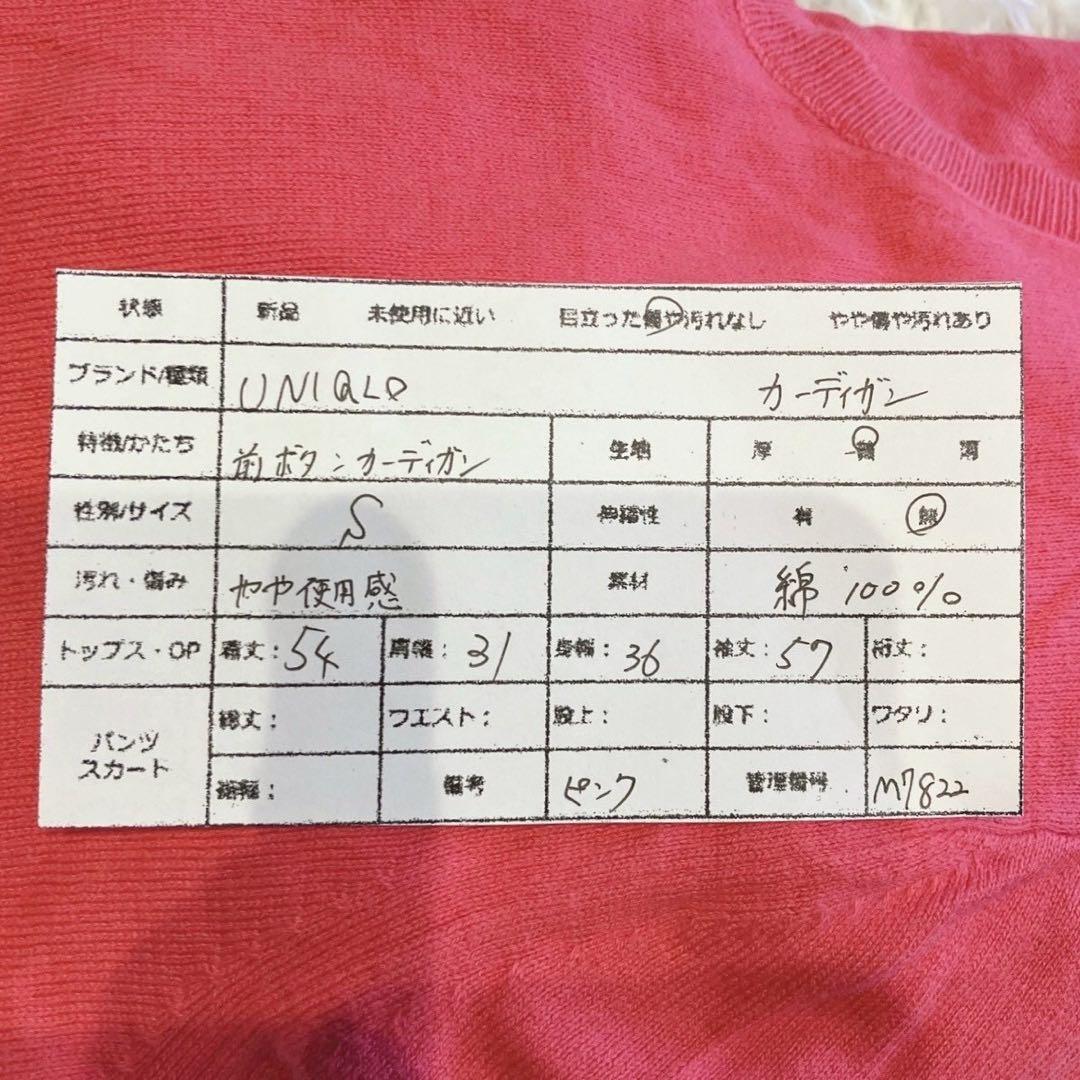 状態 新品 未使用に近い 目立った傷や汚れなし やや傷や汚れあり
ブランド/種類 UNIQLO カーディガン
特徴/かたち 前ボタンカーディガン 生地 厚 普 薄
性別/サイズ S 伸縮性 有 無
汚れ・傷み やや使用感 素材 綿 100%
トップス・OP 着丈: 54 肩幅: 31 身幅: 36 袖丈: 57 裄丈:
パンツ スカート 総丈: ウエスト: 股上: 股下: ワタリ:
裾幅: 備考 ピンク 管理番号 M7822